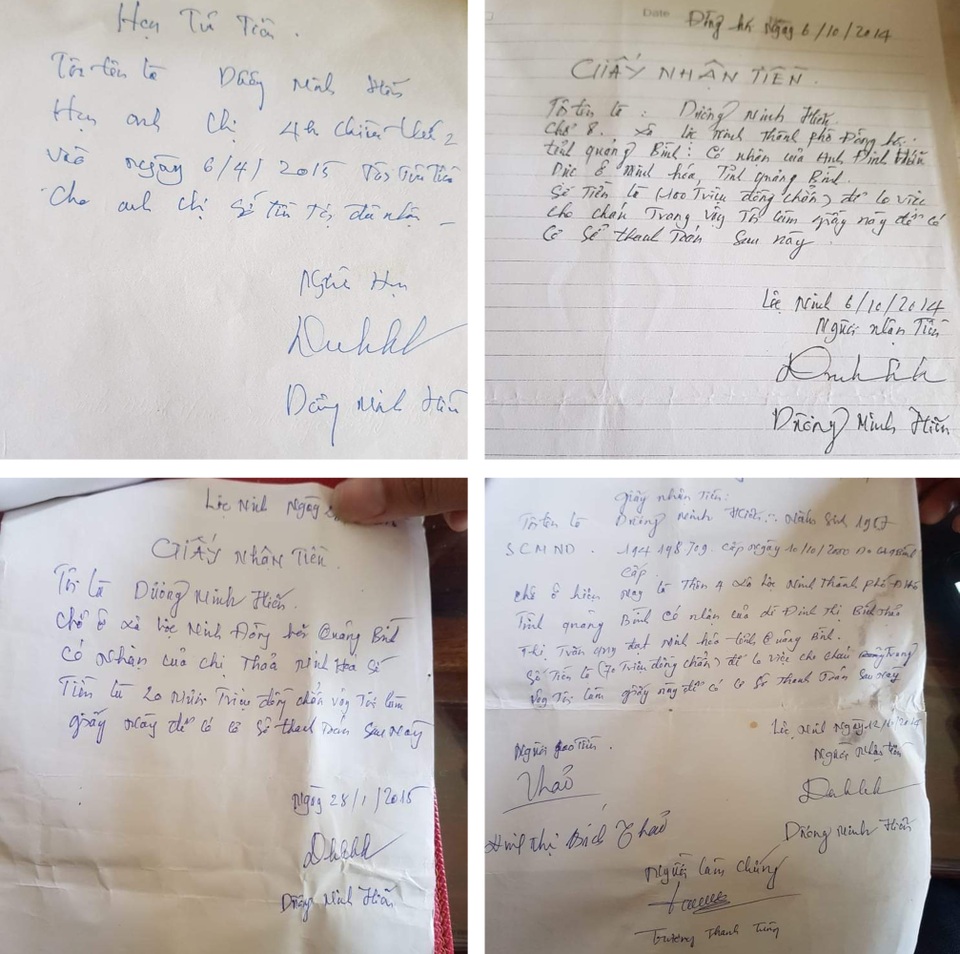 Hẹn Trả Tiền.
Tôi tên là Dương Minh Hiền
Hẹn anh chị 4h chiều thứ 2
vào ngày 6/4/2015 Tôi Trả Tiền
Cho anh chị số tiền tôi đã nhận
Người Hẹn
Dương Minh Hiền
Date Đồng hới Ngày 6/10/2014
GIẤY NHẬN TIỀN.
Tôi tên là: Dương Minh Hiền.
Chổ ở. xã lộc Ninh Thành phố Đồng hới
tỉnh quảng Bình: Có nhận của Anh Đinh
Đức ở Minh hóa, Tỉnh quảng Bình
Số Tiền là (100 Triệu đồng chẵn) để lo việc
cho cháu Trang vậy Tôi làm giấy này để có
Cơ Sở thanh Toán Sau này
Lộc Ninh 6/10/2014
Người nhận Tiền
Dương Minh Hiền
Lộc Ninh Ngày
GIẤY NHẬN TIỀN.
Tôi là Dương Minh Hiền.
Chổ ở xã lộc Ninh Đồng hới Quảng Bình
Có nhận của chị Thảo minh Hoa Số
Tiền là 20 Triệu đồng chẵn vậy Tôi làm
giấy này để có cơ Sở thanh Toán Sau này
Ngày 28/1/2015
Dương Minh Hiền
Giấy nhận Tiền:
Tôi tên là Dương Minh Hiền. Năm Sinh
SCMND. 194 198 709. Cấp ngày 10/10/2000
Cấp
chổ ở hiện nay là Thôn 4 xã lộc Ninh Thành phố
Tỉnh quảng Bình Có nhận của dì Đinh Thị Bích Thảo
Thị Trấn quy đạt minh hóa tỉnh Quảng Bình.
Số Tiền là (70 Triệu đồng chẵn) để lo việc cho cháu Trang
Vậy Tôi làm giấy này để có Cơ Sở Thanh Toán Sau này
Lộc Ninh Ngày 12
Người giao Tiền. Người Nhận tiền
Thảo
Đinh Thị Bích Thảo Dương Minh Hiền
Người làm Chứng
Trương Thanh Tùng